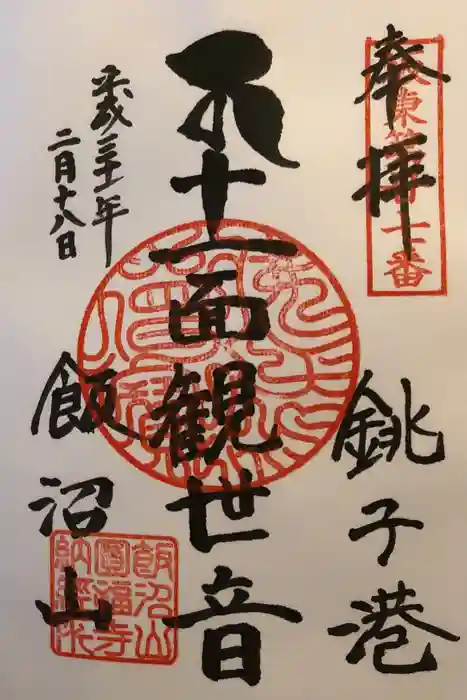 奉拝
坂東第廿七番
銚子港
十一面観世音
平成三十一年
二月十八日
飯沼山
飯沼山
圓福寺
納経印